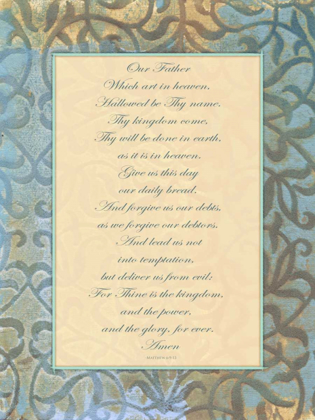 Our Father
Which art in heaven,
Hallowed be Thy name.
Thy kingdom come,
Thy will be done in earth,
as it is in heaven.
Give us this day
our daily bread.
And forgive us our debts,
as we forgive our debtors.
And lead us not
into temptation,
but deliver us from evil:
For Thine is the kingdom,
and the power,
and the glory, for ever.
Amen